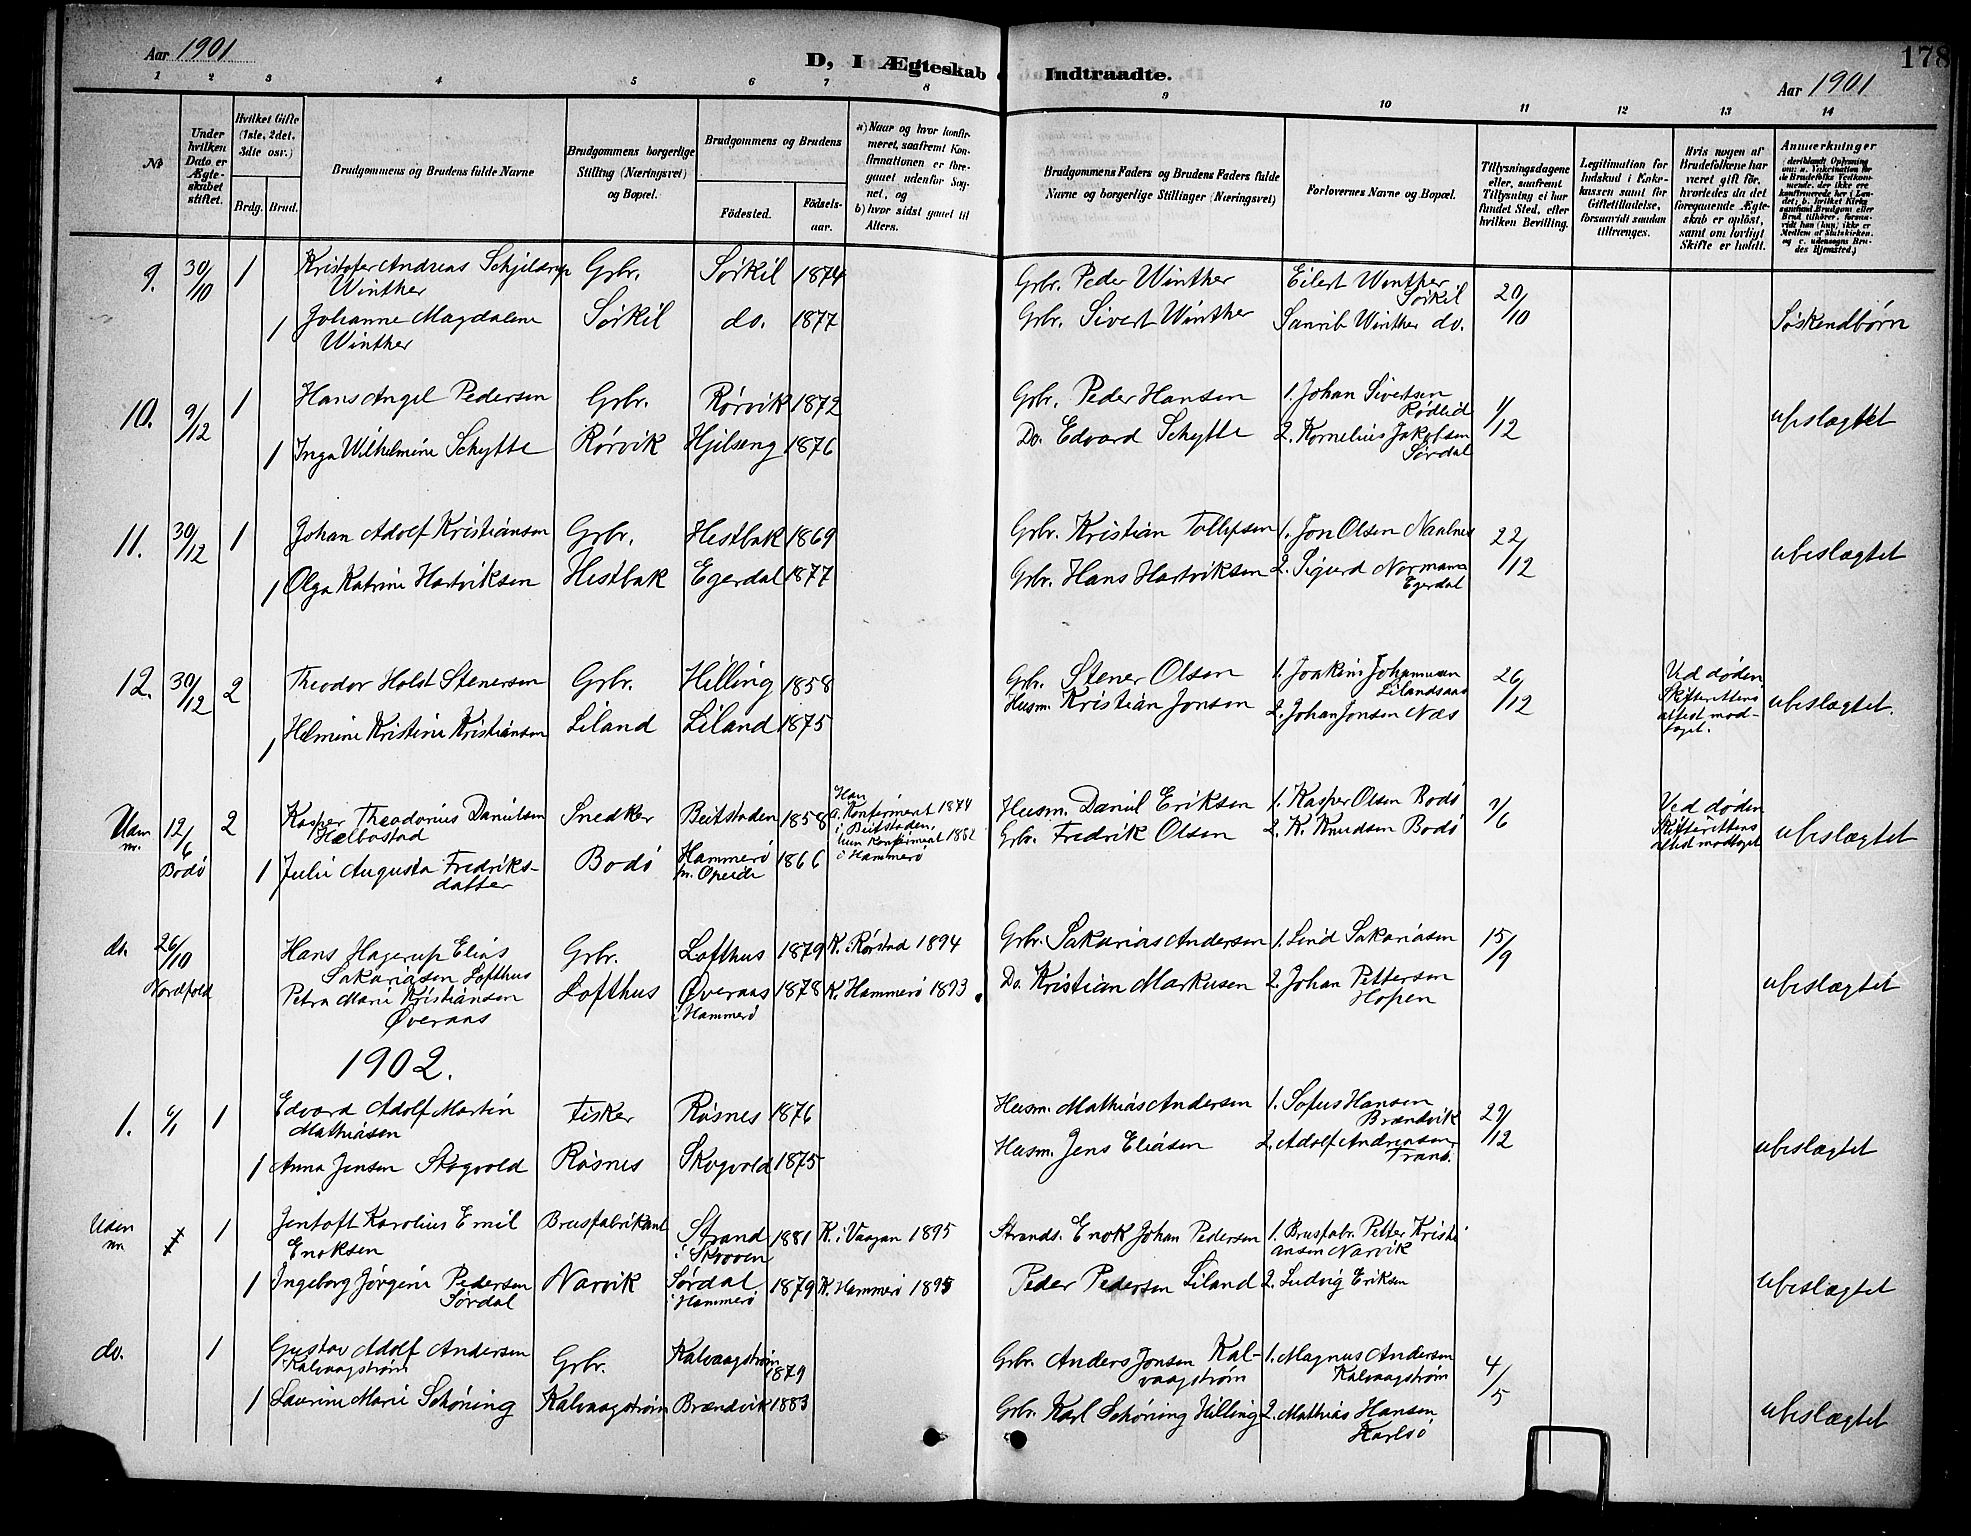 Aar 1901
D, I Ægteskab Indtraadte.
178
Aar 1901
1 2 3 4 5 6 7 8 9 10 11 12 13 14
No
Under hvilken Dato er Ægteskabet stiftet.
Hvilket Gifte (1ste, 2det, 3die osv.)
Brdg. Brud.
Brudgommens og Brudens fulde Navne
Brudgommens borgerlige Stilling (Næringsvei) og Bopæl.
Brudgommens og Brudens
Fødested.
Fødselsaar.
a) Naar og hvor konfirmeret, saafremt Konfirmationen er foregaaet udenfor Sognet, og
b) hvor sidst gaaet til Alters.
Brudgommens Faders og Brudens Faders fulde Navne og borgerlige Stillinger (Næringsvei)
Forlovernes Navne og Bopæl.
Tillysningsdagene eller, saafremt Tillysning ei har fundet Sted, efter hvilken Bevilling.
Legitimation for Indskud i Enkekassen samt for Giftetilladelse, forsaavidt saadan tiltrænges.
Hvis nogen af Brudefolkene har været gift før, hvorledes da det foregaaende Ægteskab er opløst, samt om lovligt Skifte er holdt.
Anmærkninger
9. 30/10 1 Kristofer Andreas Schjildrup Grbr. Sørkil 1874 Grbr. Peder Winther Eilert Winther 20/10
Winther Sørkil
1 Johanne Magdalene Sørkil do. 1877 Grbr. Sivert Winther Sanrib Winther do. Søskendbørn
Winther
10. 9/12 1 Hans Angel Pedersen Grbr. Rørvik 1872 Grbr. Peder Hansen 1. Johan Sivertsen 1/12 ubeslægtet
Rødlid
1 Inga Wilhelmine Schytte Rørvik Hjilseng 1876 Do. Edvard Schytte 2. Kornelius Jakobsen
Sørdal
11. 30/12 1 Johan Adolf Kristiansen Grbr. Hestbak 1869 Grbr. Kristian Tollefsen 1. Jon Olsen Naalnes 22/12 ubeslægtet
1 Olga Katrine Hartviksen Hestbak Egerdal 1877 Grbr. Hans Hartviksen 2. Sigurd Normann
Egerdal
12. 30/12 2 Theodor Holst Stenersen Grbr. Hilling 1858 Grbr. Stener Olsen 1. Joakim Johannesen 26/12 Ved døden
Lilandsaas Skifterettens
1 Helmine Kristine Kristiansen Liland Liland 1875 Husm. Kristian Jonsen 2. Johan Jonsen Næs attest modtaget. ubeslægtet.
Uden nr. 12/6 2 Kasper Theodorius Danielsen Snedker Beitstaden 1858 Han a. Konfirmeret 1874 Husm. Daniel Eriksen 1. Kasper Olsen Bodø 9/6 Ved døden
Hælbostad i Beitstaden, Skifterettens
Bodø hun Konfirmeret 1882 Grbr. Fredrik Olsen 2. K. Knudsen Bodø attest modtaget ubeslægtet
1 Julie Augusta Fredriksdatter Bodø Hammerø 1866 i Hammerø
do. 26/10 Hans Hagerup Elias Grbr. Lofthus 1879 K. i Rørstad 1894 Grbr. Sakarias Andersen 1. Lind Sakariasen 15/9
Nordfold Sakariasen Lofthus
Petra Marie Kristiansen Lofthus Øveraas 1878 K. Hammerø 1893 Do. Kristian Markusen 2. Johan Pettersen ubeslægtet
Øveraas i Hammerø Hopen
1902.
1. 6/1 1 Edvard Adolf Martin Fisker Røsnes 1876 Husm. Mathias Andersen 1. Sofus Hansen 29/12
Mathiasen Brændvik
1 Anna Jensen Skogvold Røsnes Skogvold 1875 Husm. Jens Eliasen 2. Adolf Andreasen ubeslægtet
Tranø.
Uden nr. 1 Jentoft Karolius Emil Brusfabrikant Strand 1881 K. i Vaagan 1895 Strands. Enok Johan Pedersen 1. Brusfabr. Petter Kristiansen Narvik
Enoksen i Skroven
1 Ingeborg Jørgine Pedersen Narvik Sørdal 1879 K. Hammerø 1895 Peder Pedersen Liland 2. Ludvig Eriksen ubeslægtet
Sørdal i Hammerø
do. 1 Gustav Adolf Andersen Grbr. Kalvaagstrøm 1879 Grbr. Anders Jonsen Kalvaagstrøm 1. Magnus Andersen 4/5
Kalvaagstrøm Kalvaagstrøm
1 Laurine Marie Schøning Kalvaagstrøm Brændvik 1883 Grbr. Karl Schøning Hilling 2. Mathias Hansen ubeslægtet
Karlsø